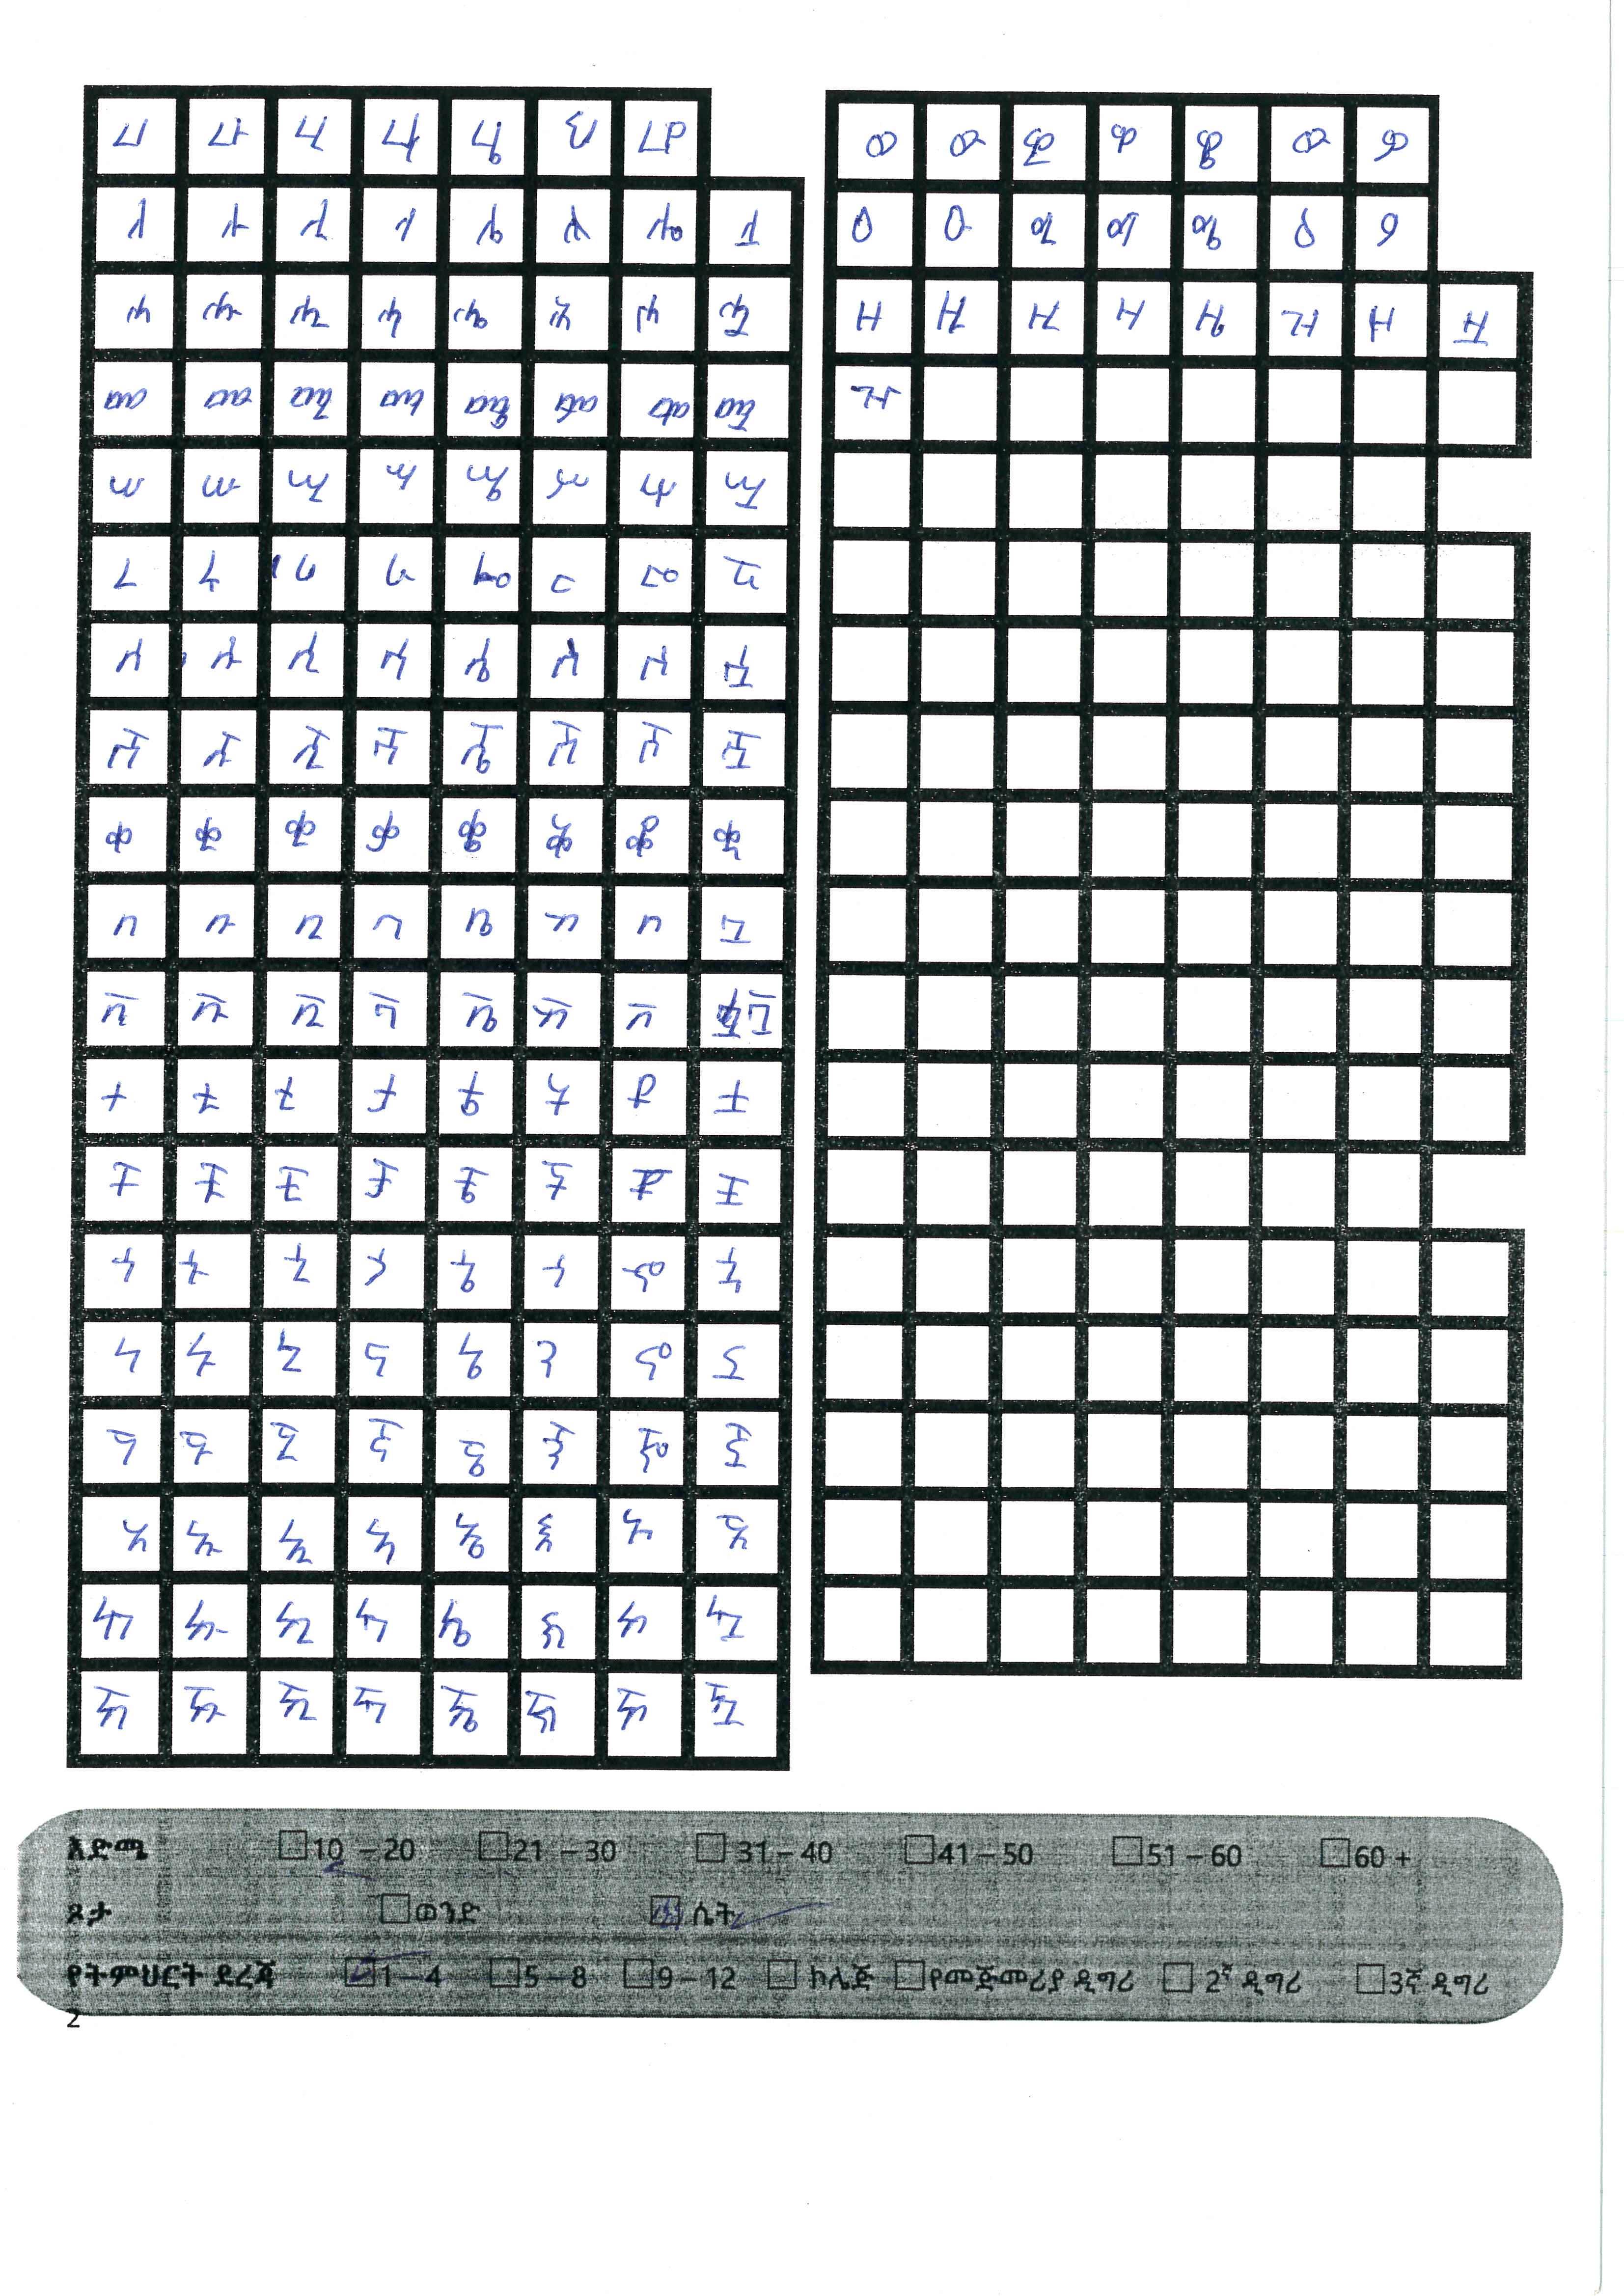 ሀ ሁ ሂ ሃ ሄ ህ ሆ
ለ ሉ ሊ ላ ሌ ል ሎ ሏ
ሐ ሑ ሒ ሓ ሔ ሕ ሖ ሗ
መ ሙ ሚ ማ ሜ ም ሞ ሟ
ሠ ሡ ሢ ሣ ሤ ሥ ሦ ሧ
ረ ሩ ሪ ራ ሬ ር ሮ ሯ
ሰ ሱ ሲ ሳ ሴ ስ ሶ ሷ
ሸ ሹ ሺ ሻ ሼ ሽ ሾ ሿ
ቀ ቁ ቂ ቃ ቄ ቅ ቆ ቋ
በ ቡ ቢ ባ ቤ ብ ቦ ቧ
ቨ ቩ ቪ ቫ ቬ ቭ ቮ ቯ
ተ ቱ ቲ ታ ቴ ት ቶ ቷ
ቸ ቹ ቺ ቻ ቼ ች ቾ ቿ
ኀ ኁ ኂ ኃ ኄ ኅ ኆ ኋ
ነ ኑ ኒ ና ኔ ን ኖ ኗ
ኘ ኙ ኚ ኛ ኜ ኝ ኞ ኟ
አ ኡ ኢ ኣ ኤ እ ኦ ኧ
ከ ኩ ኪ ካ ኬ ክ ኮ ኳ
ኸ ኹ ኺ ኻ ኼ ኽ ኾ ዃ
ወ ዉ ዊ ዋ ዌ ው ዎ
ዐ ዑ ዒ ዓ ዔ ዕ ዖ
ዘ ዙ ዚ ዛ ዜ ዝ ዞ ዟ
እድሜ 10 – 20 21 – 30 31 – 40 41 – 50 51 – 60 60 +
ጾታ ወንድ ሴት
የትምህርት ደረጃ 1 – 4 5 – 8 9 – 12 ኮሌጅ የመጀመሪያ ዲግሪ 2ኛ ዲግሪ 3ኛ ዲግሪ
2